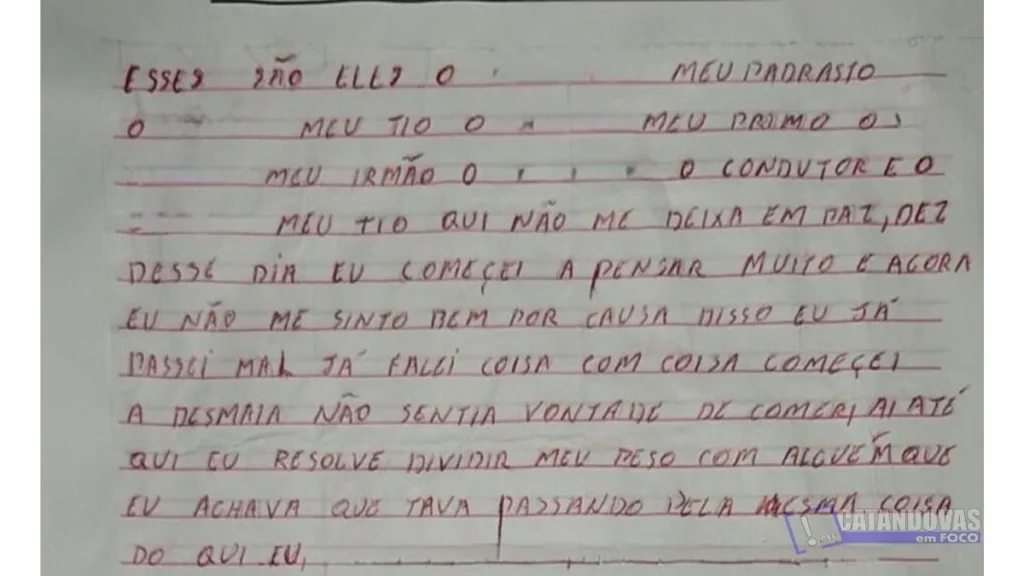 ESSES SÃO ELES O MEU PADRASTO
O MEU TIO O MEU PRIMO OS
MEU IRMÃO O O CONDUTOR E O
MEU TIO QUI NÃO ME DEIXA EM PAZ, DEZ
DESSE DIA EU COMEÇEI A PENSAR MUITO E AGORA
EU NÃO ME SINTO BEM POR CAUSA DISSO EU JÁ
PASSEI MAL JÁ FALEI COISA COM COISA COMEÇEI
A DESMAIA NÃO SENTIA VONTADE DE COMER, AI ATÉ
QUI EU RESOLVE DIVIDIR MEU PESO COM ALGUÉM QUE
EU ACHAVA QUE TAVA PASSANDO PELA MESMA COISA
DO QUI EU,
CATANDUVAS
em FOCO